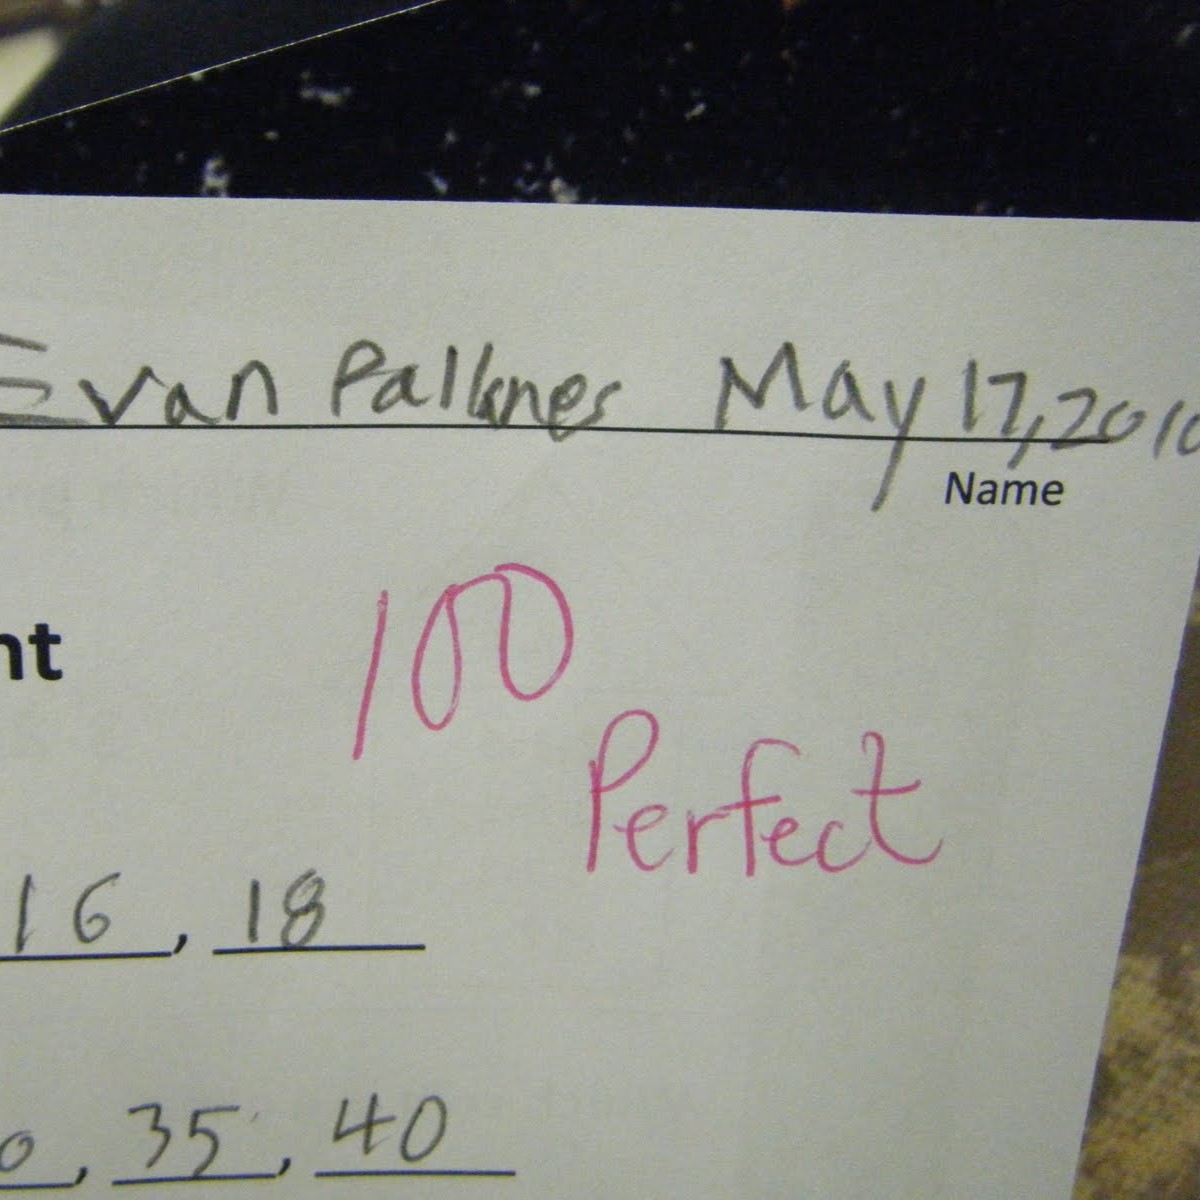 Evan Palkner May 17, 2010
Name
nt
100
Perfect
16, 18
0, 35, 40